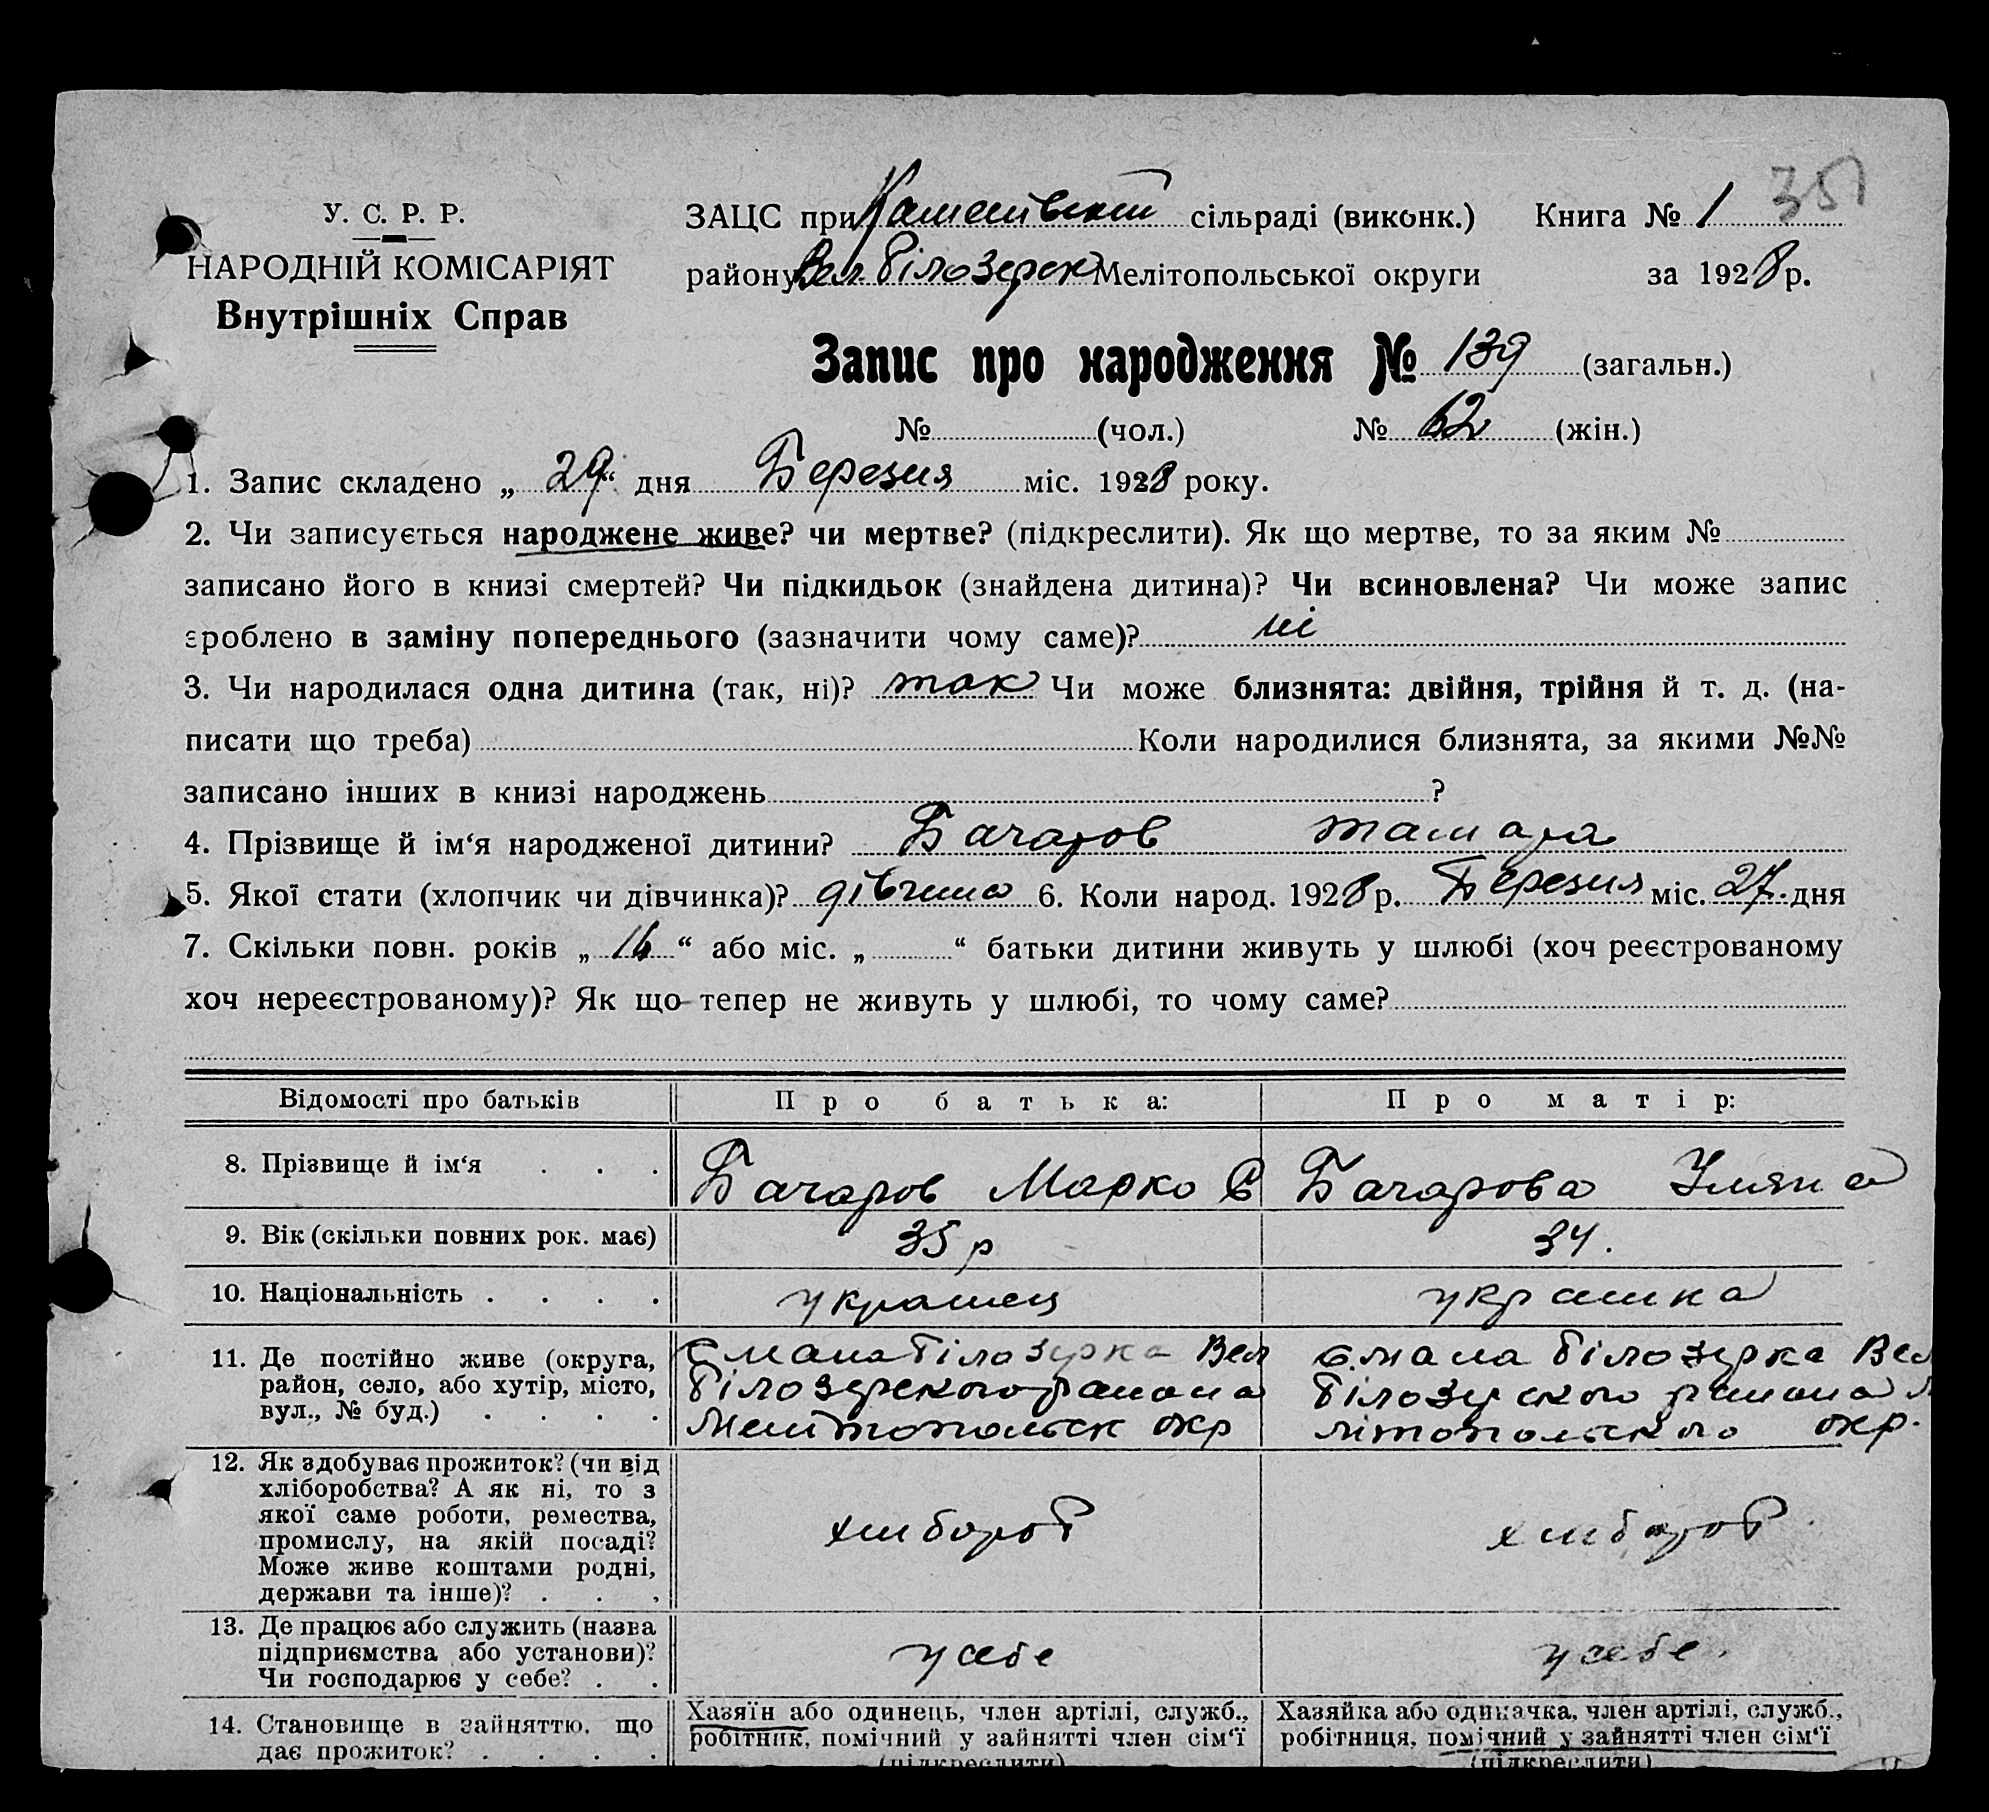 351
У. С. Р. Р.
НАРОДНІЙ КОМІСАРІЯТ
Внутрішніх Справ
ЗАЦС при сільраді (виконк.) Книга № 1
району Вел. Білозерск Мелітопольської округи за 1928 р.
Запис про народження № 139 (загальн.)
№ (чол.) № 62 (жін.)
1. Запис складено „ 29 “ дня Березня міс. 1928 року.
2. Чи записується народжене живе? чи мертве? (підкреслити). Як що мертве, то за яким №
записано його в книзі смертей? Чи підкидьок (знайдена дитина)? Чи всиновлена? Чи може запис
зроблено в заміну попереднього (зазначити чому саме)? ні
3. Чи народилася одна дитина (так, ні)? так Чи може близнята: двійня, трійня й т. д. (на-
писати що треба) Коли народилися близнята, за якими №№
записано інших в книзі народжень ?
4. Прізвище й ім‘я народженої дитини? Бачаров Тамара
5. Якої стати (хлопчик чи дівчинка)? дівчина 6. Коли народ. 1928 р. Березня міс. 27 дня
7. Скільки повн. років „ 16 “ або міс. „ “ батьки дитини живуть у шлюбі (хоч реєстрованому
хоч нереєстрованому)? Як що тепер не живуть у шлюбі, то чому саме?
Відомості про батьків Про батька: Про матір:
8. Прізвище й ім‘я . . . Бачаров Марко Є Бачарова Уляна
9. Вік (скільки повних рок. має) 35 р 34.
10. Національність . . . . українец українка
11. Де постійно живе (округа,
район, село, або хутір, місто,
вул., № буд.) . . . .
с мала Білозерка Вел
Білозерского района
Мелітопольск окр
с. мала Білозерка Вел
Білозерского района М
літопольского окр.
12. Як здобуває прожиток? (чи від
хліборобства? А як ні, то з
якої саме роботи, ремества,
промислу, на якій посаді?
Може живе коштами родні,
держави та інше)? . . .
хлібороб
хлібороб
13. Де працює або служить (назва
підприємства або установи)?
Чи господарює у себе? . .
у себе
у себе.
14. Становище в зайняттю, що
дає прожиток? . . . .
Хазяїн або одинець, член артілі, служб.,
робітник, помічний у зайнятті член сім‘ї
(підкреслити)
Хазяйка або одиначка, член артілі, служб.,
робітниця, помічний у зайнятті член сім‘ї
(підкреслити)